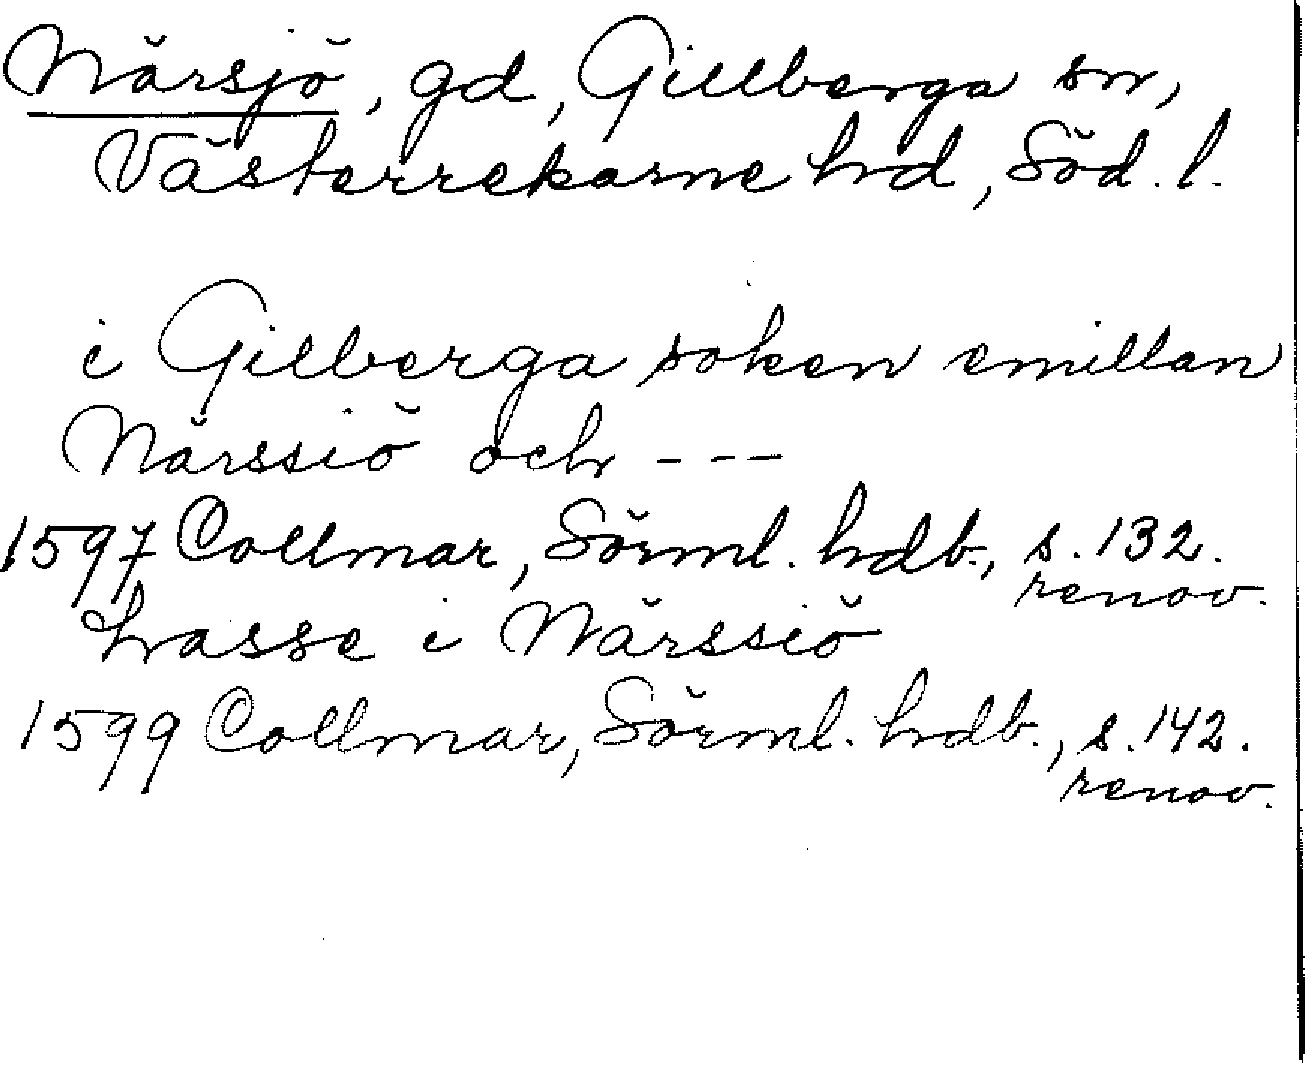 Närsjö, gd, Gillberga sn,
Västerrekarne hd, Söd. l.
i Gilberga soken emillan
Närssiö och ---
1597 Collmar, Sörml. hdb., s. 132.
renov.
Lasse i Närssiö
1599 Collmar, Sörml. hdb., s. 142.
renov.